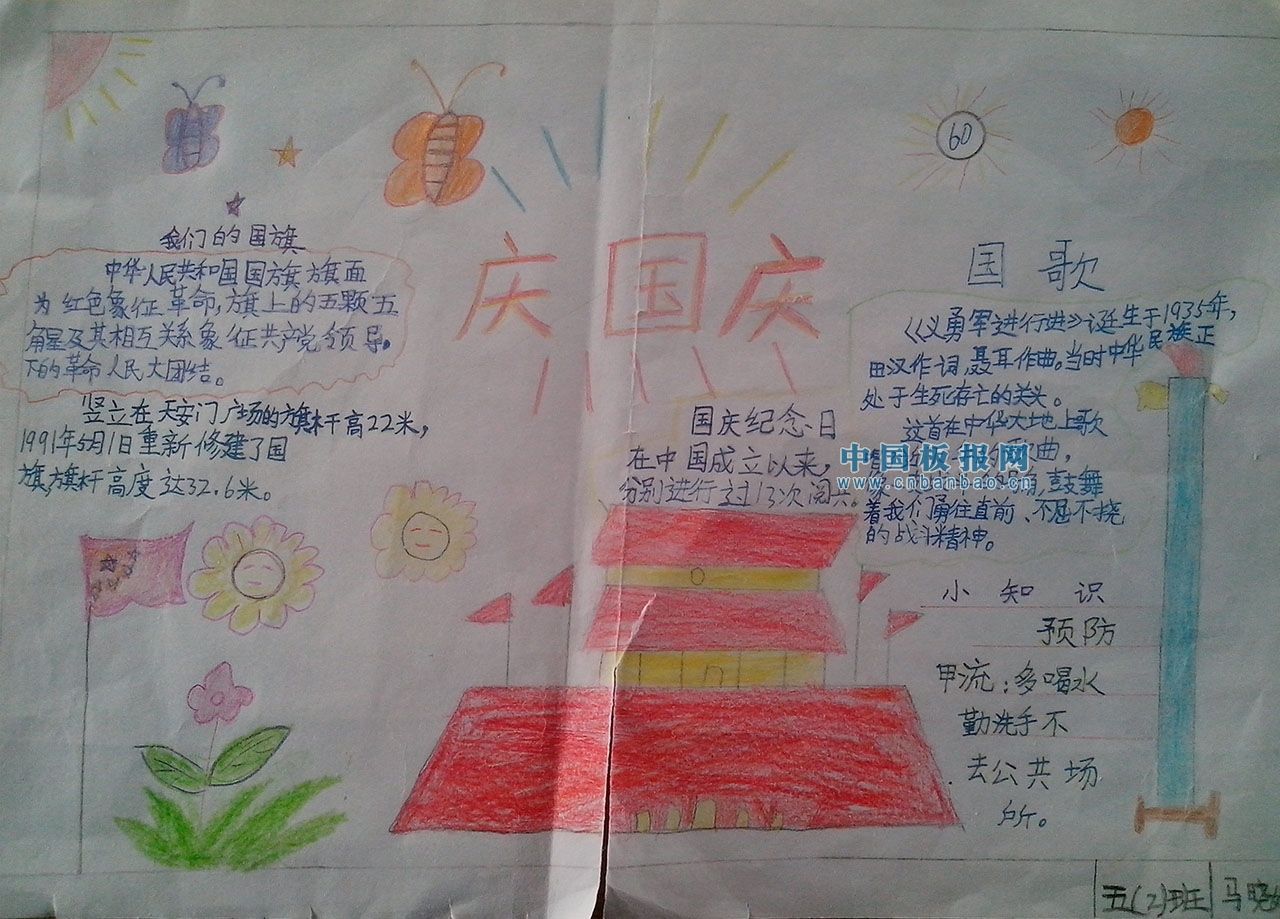 60
庆国庆
我们的国旗
中华人民共和国国旗旗面
为红色象征革命,旗上的五颗五
角星及其相互关系象征共产党领导。
下的革命人民大团结。
竖立在天安门广场的旗杆高22米,
1991年5月1日重新修建了国
旗,旗杆高度达32.6米。
国庆纪念日
在中国成立以来,
分别进行过13次阅兵。
国歌
《义勇军进行进》诞生于1935年,
田汉作词,聂耳作曲。当时中华民族正
处于生死存亡的关头。
这首在中华大地上歌
曲,
号角,鼓舞
着我们勇往直前、不屈不挠
的战斗精神。
中国板报网
www.cnbanbao.cn
小知识
预防
甲流:多喝水
勤洗手不
去公共场
所。
五(2)班 马晓